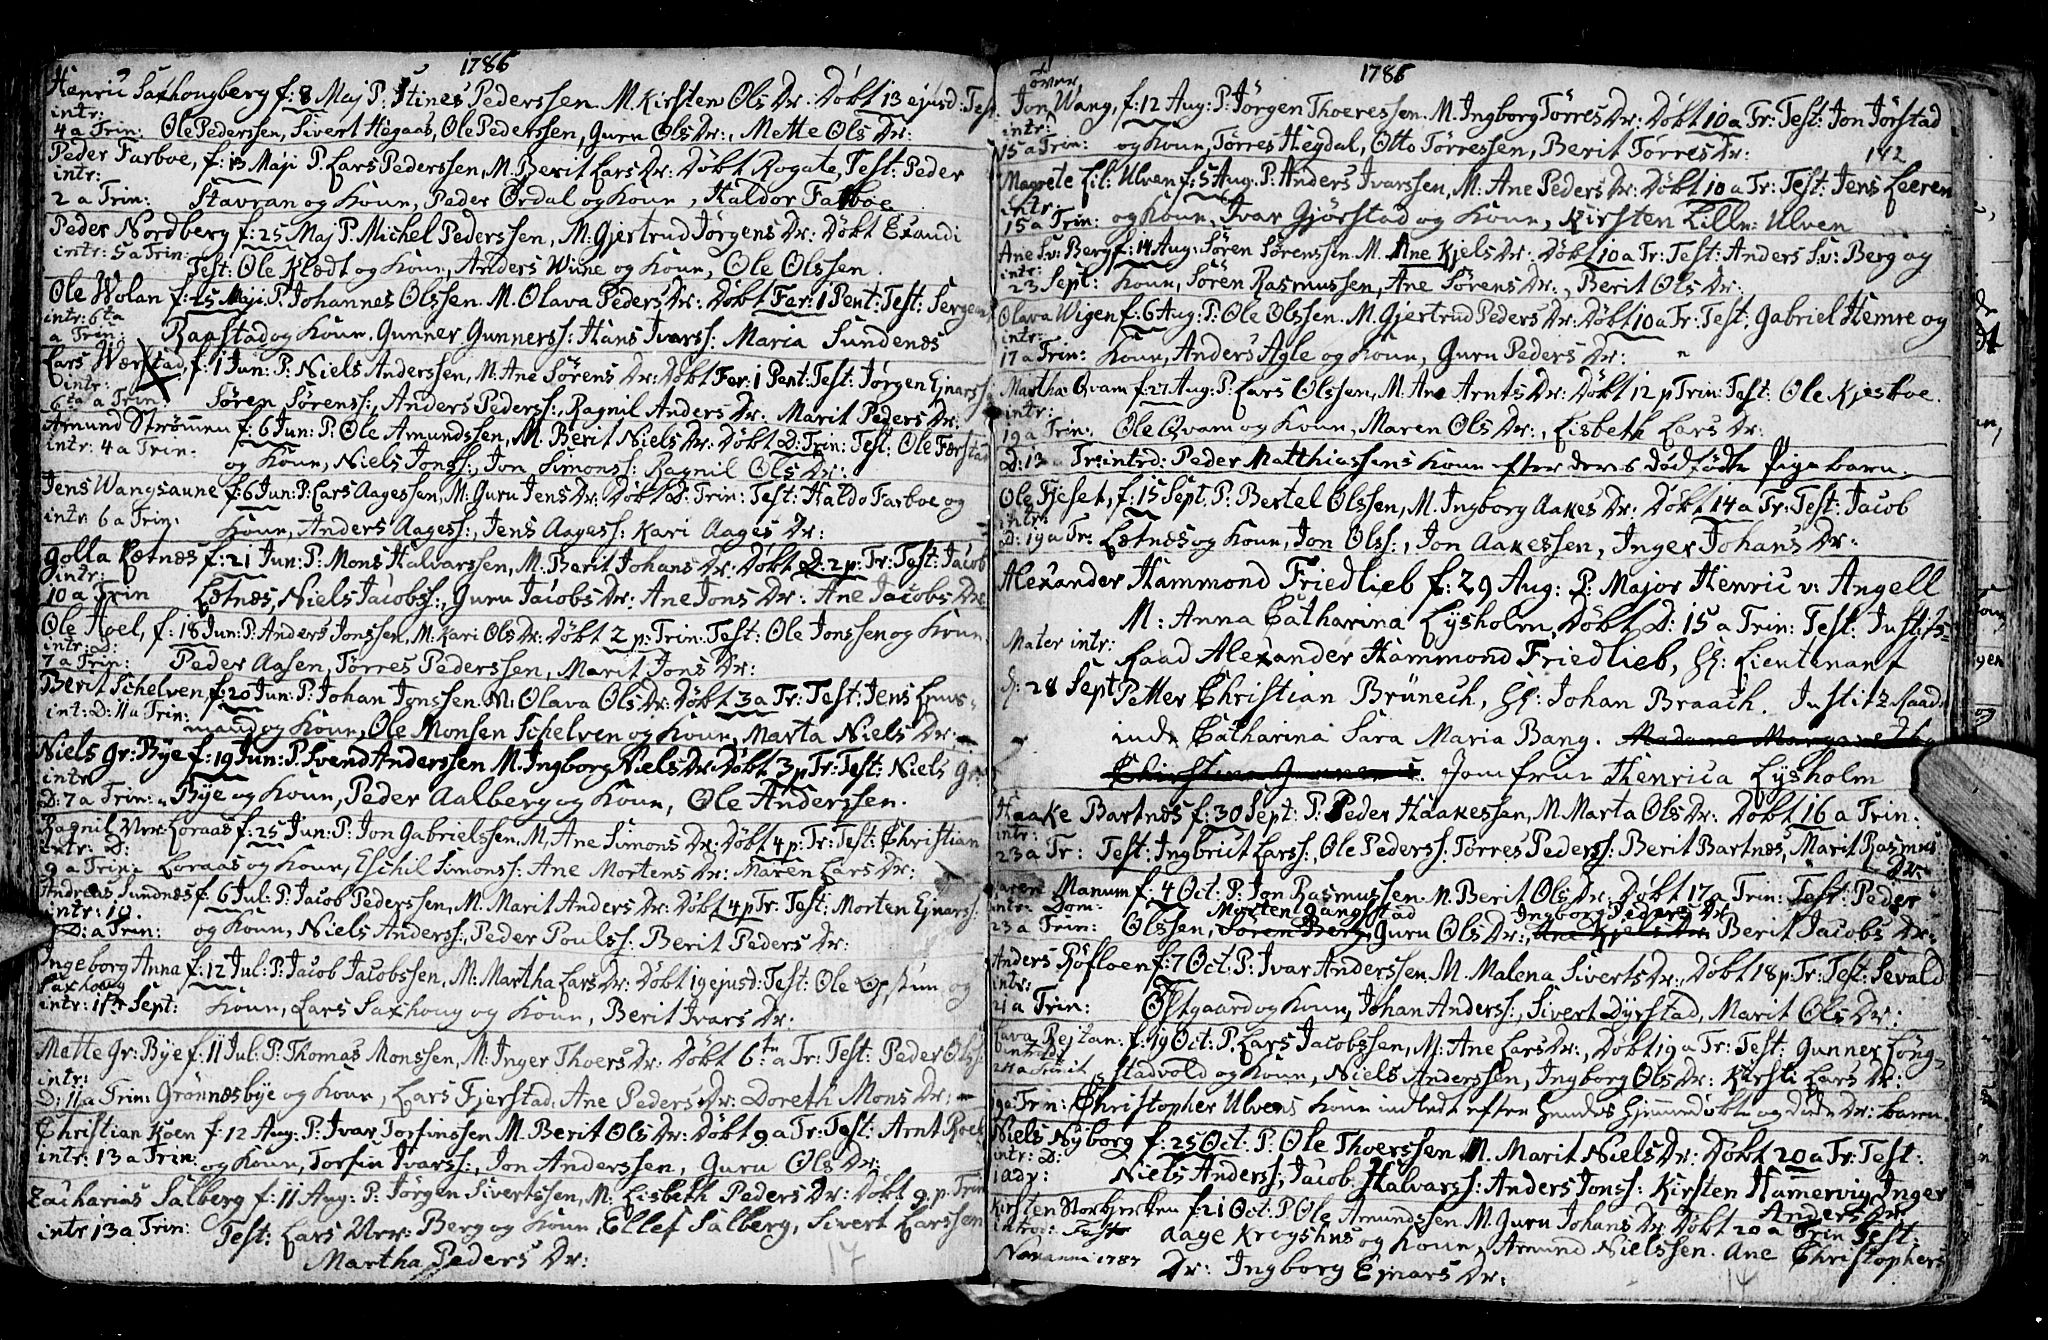 1786
Henric Saxhougberg f: 8 Maj P: Stines Pederssen. M. Kirsten Ols Dr: Döbt 13 ejusd: Test
intr:
4 a Trin: Ole Pederssen, Sivert Hegaas, Ole Pederssen, Guru Ols Dr:, Mette Ols Dr:
Peder Farboe, f: 13 Maji P. Lars Pederssen, M. Berit Lars Dr: Döbt Rogate, Test: Peder
intr:
2 a Trin: Stavran og Konn, Peder Ordal og Konn, Haldor Farboe
Peder Nordberg f: 25 Maj P. Michel Pederssen, M: Gjertrud Jörgens Dr: Döbt Exaudi
intr: 5 a Trin: Test: Ole Klædt og Konn, Anders Wine og Konn, Ole Olssen.
Ole Wolan f: 25 Maji. P. Johannes Olssen. M. Olava Peders Dr: Döbt Fer: 1 Pent: Test: Sergean
intr: 6ta
a Trin: Raastad og Konn. Gunner Gunnerss: Hans Ivarss: Maria Sundenæs
Lars Wærstad, f: 1 Jun: P: Niels Anderssen, M. Ane Sörens Dr: Döbt Fer: 1 Pent: Test: Jörgen Ejnarss:
intr:
6ta a Trin Sören Sörenss:, Anders Pederss:, Ragnil Anders Dr: Marit Peders Dr:
Amund Strömen f: 6 Jun: P: Ole Amundssen, M. Berit Niels Dr: Döbt D: Trin: Test: Ole Færstad
intr: 4 a Trin: og Konn, Niels Jonss:, Jon Simonss: Ragnil Ols Dr:
Jens Wangsaune f: 6 Jun: P: Lars Aagessen, M: Guru Jens Dr: Döbt D: Trin: Test: Haldo Farboe og
intr: 6 a Trin: Konn, Anders Aagess:, Jens Aagess: Kari Aages Dr:
Golla Lætnæs f: 21 Jun: P: Mons Halvarssen, M. Berit Johans Dr: Döbt D: 2 p: Tr: Test: Jacob
intr:
10 a Trin Lætnæs, Niels Jacobss:, Guru Jacobs Dr: Ane Jons Dr: Ane Jacobs Dr
Ole Hoel, f: 18 Jun: P: Anders Jonssen, M. Kari Ols Dr: Döbt 2 p: Trin. Test: Ole Jonssen og Konn
intr: D:
7 a Trin: Peder Aasen, Törres Pederssen, Marit Jons Dr:
Berit Schelven f: 20 Jun: P: Johan Jonssen. M: Olava Ols Dr: Döbt 3 a Tr: Test: Jens Lens-
int: D: 11 a Trin: mand og Konn, Ole Monsen Schelven og Konn, Marta Niels Dr:
Niels Gr: Bye f: 19 Jun: P. Svend Anderssen M. Ingborg Niels Dr: Döbt 3 p Tr: Test: Niels Gr:
intr
D: 7 a Trin: Bye og Konn, Peder Aalberg og Konn, Ole Anderssen.
Ragnil Ner: Loraas f: 25 Jun: P: Jon Gabrielssen, M, Ane Simons Dr: Döbt 4 p: Tr: Test: Christian
intr: D:
9 a Trin: Loraas og Konn, Eschil Simonss: Ane Mortens Dr: Maren Lars Dr:
Andreas Sundnæs f: 6 Jul: P: Jacob Pederssen, M. Marit Anders Dr: Döbt 4 p Tr: Test: Morten Ejnarss:
intr: 10.
D: a Trin: og Konn, Niels Anderss:, Peder Poulss: Berit Peders Dr:
Ingeborg Anna f: 12 Jul: P: Jacob Jacobssen, M: Martha Lars Dr: Döbt 19 ejusd: Test: Ole Opstun, og
Saxhoug
intr: 17 Sept: Konn, Lars Saxhoug og Konn, Berit Ivars Dr:
Mette Gr: Bye f: 11 Jul: P: Thomas Monssen, M: Inger Thoers Dr: Döbt 6te a Tr: Test: Peder Olss:
intr:
D: 11 a Trin: Grönnæsbye og Konn, Lars Fjerstad: Ane Peders Dr: Doreth Mons Dr:
Christian Koen f: 12 Aug: P: Ivar Torfinssen M. Berit Ols Dr: Döbt 9 a Tr: Test: Arnt Roel
intr: 13 a Trin: og Konn, Torfin Ivarss:, Jon Anderssen, Guru Ols Dr:
Zacharias Salberg f: 11 Aug: P: Jörgen Sivertssen, M: Lisbeth Peders Dr: Döbt 9. p. Trin
intr 13 a Trin: Test: Lars Ner: Berg og Konn, Ellef Salberg, Sivert Larssen
Martha Peders Dr:
17
1786
över
Jon Wang, f: 12 Aug: P: Jörgen Thoeressen. M. Ingborg Törres Dr: Döbt 10 a Tr: Test: Jon Jörstad
intr:
15 a Trin: og Konn, Törres Hegdal, Otto Törressen, Berit Törres Dr:
142
Magrete Lil: Ulven f: 5 Aug. P: Anders Ivarssen, M: Ane Peders Dr: Döbt 10 a Tr: Test: Jens Leeren
intr:
15 a Trin: og Konn, Ivar Gjörstad og Konn, Kirsten Lille: Ulven
Ane Sv: Berg f: 14 Aug: Sören Sörenssen M. Ane Kjels Dr: Döbt 10 a Tr: Test: Anders Sv: Berg og
intr:
23 Sept: Konn, Sören Rasmussen, Ane Sörens Dr:, Berit Ols Dr:
Olava Wigen f: 6 Aug: P: Ole Olssen. M. Gjertrud Peders Dr: Döbt 10 a Tr: Test: Gabriel Hemre og
intr:
17 a Trin: Konn, Anders Agle og Konn, Guru Peders Dr:
Martha Qvam f: 27 Aug: P. Lars Olssen, M: Ane Arnts Dr: Döbt 12 p Trin: Test: Ole Kjesboe.
intr:
19 a Trin: Ole Qvam og Konn, Maren Ols Dr:, Lisbeth Lars Dr:
D: 13 a Tr: intrd: Peder Matthiassens Konn efter deres dödfödte Pigebarn.
Ole Fjeset, f: 15 Sept. P: Bertel Olssen, M. Ingborg Aakes Dr: Döbt 14 a Tr: Test: Jacob
intr:
D: 19 a Tr: Lætnæs og Konn, Jon Olss:, Jon Aakessen, Inger Johans Dr:
Alexander Hammond Friedlieb f: 29 Aug: P: Major Henric v: Angell
M: Anna Catharina Lysholm, Döbt D: 15 a Trin: Test: Justitz-
Mater intr: Raad Alexander Hammond Friedlieb, Hr: Lieutenant
28 Sept Petter Christian Brünech, Hr: Johan Braach. Justitz Raad-
inde Catharina Sara Maria Bang. Madame Margarethe
Christine. Jomfrue Henrica Lysholm
Haake Bartnæs f: 30 Sept: P: Peder Haakessen, M. Marta Ols Dr: Döbt 16 a Trin.
intr:
23 a Tr: Test: Ingbrict Larss:, Ole Pederss: Törres Pederss: Berit Bartnæs, Marit Rasmus
Dr:
Maren Manum f: 4 Oct: P: Jon Rasmussen. M. Berit Ols Dr: Döbt 17 a Trin: Test: Peder
intr: Dom: Morten Wangstad Ingborg Peders Dr
23 a Trin: Olssen, Sören Berg, Guru Ols Dr:, Ane Kjels Dr: Berit Jacobs Dr:
Anders Röfloen f: 7 Oct: P: Ivar Anderssen, M. Malena Siverts Dr: Döbt 18 p Tr: Test: Sevald
intr:
21 a Trin: Östgaard og Konn, Johan Anderss:, Sivert Dyrstad, Marit Ols Dr:
Lava Rejtan f: 19 Oct: P. Lars Jacobssen, M: Ane Lars Dr:, Döbt 19 a Tr: Test: Gunner Löng-
24 a Trinit stadvold og Konn, Niels Anderssen, Ingborg Ols Dr: Kirsti Lars Dr:
19 a Trin: Christopher Ulvens Konn indledt efter hendes hjemmedöbte og döde Dr: barn.
Niels Nyborg f: 25 Oct: P. Ole Thoerssen. M. Marit Niels Dr: Döbt 20 a Tr: Test:
intr: D:
1 adv: Niels Anderss, Jacob Halvarss: Anders Jonss: Kirsten Hamervig Inger
Anders Dr:
Kirsten Storkjerken f: 21 Oct: P. Ole Amundssen. M. Guru Johans Dr: Döbt 20 a Trin Test:
introd: Test Aage Krogshus og Konn, Amund Nielssen. Ane Christophers
Nov anni 1787 Dr: Ingborg Ejnars Dr:
17